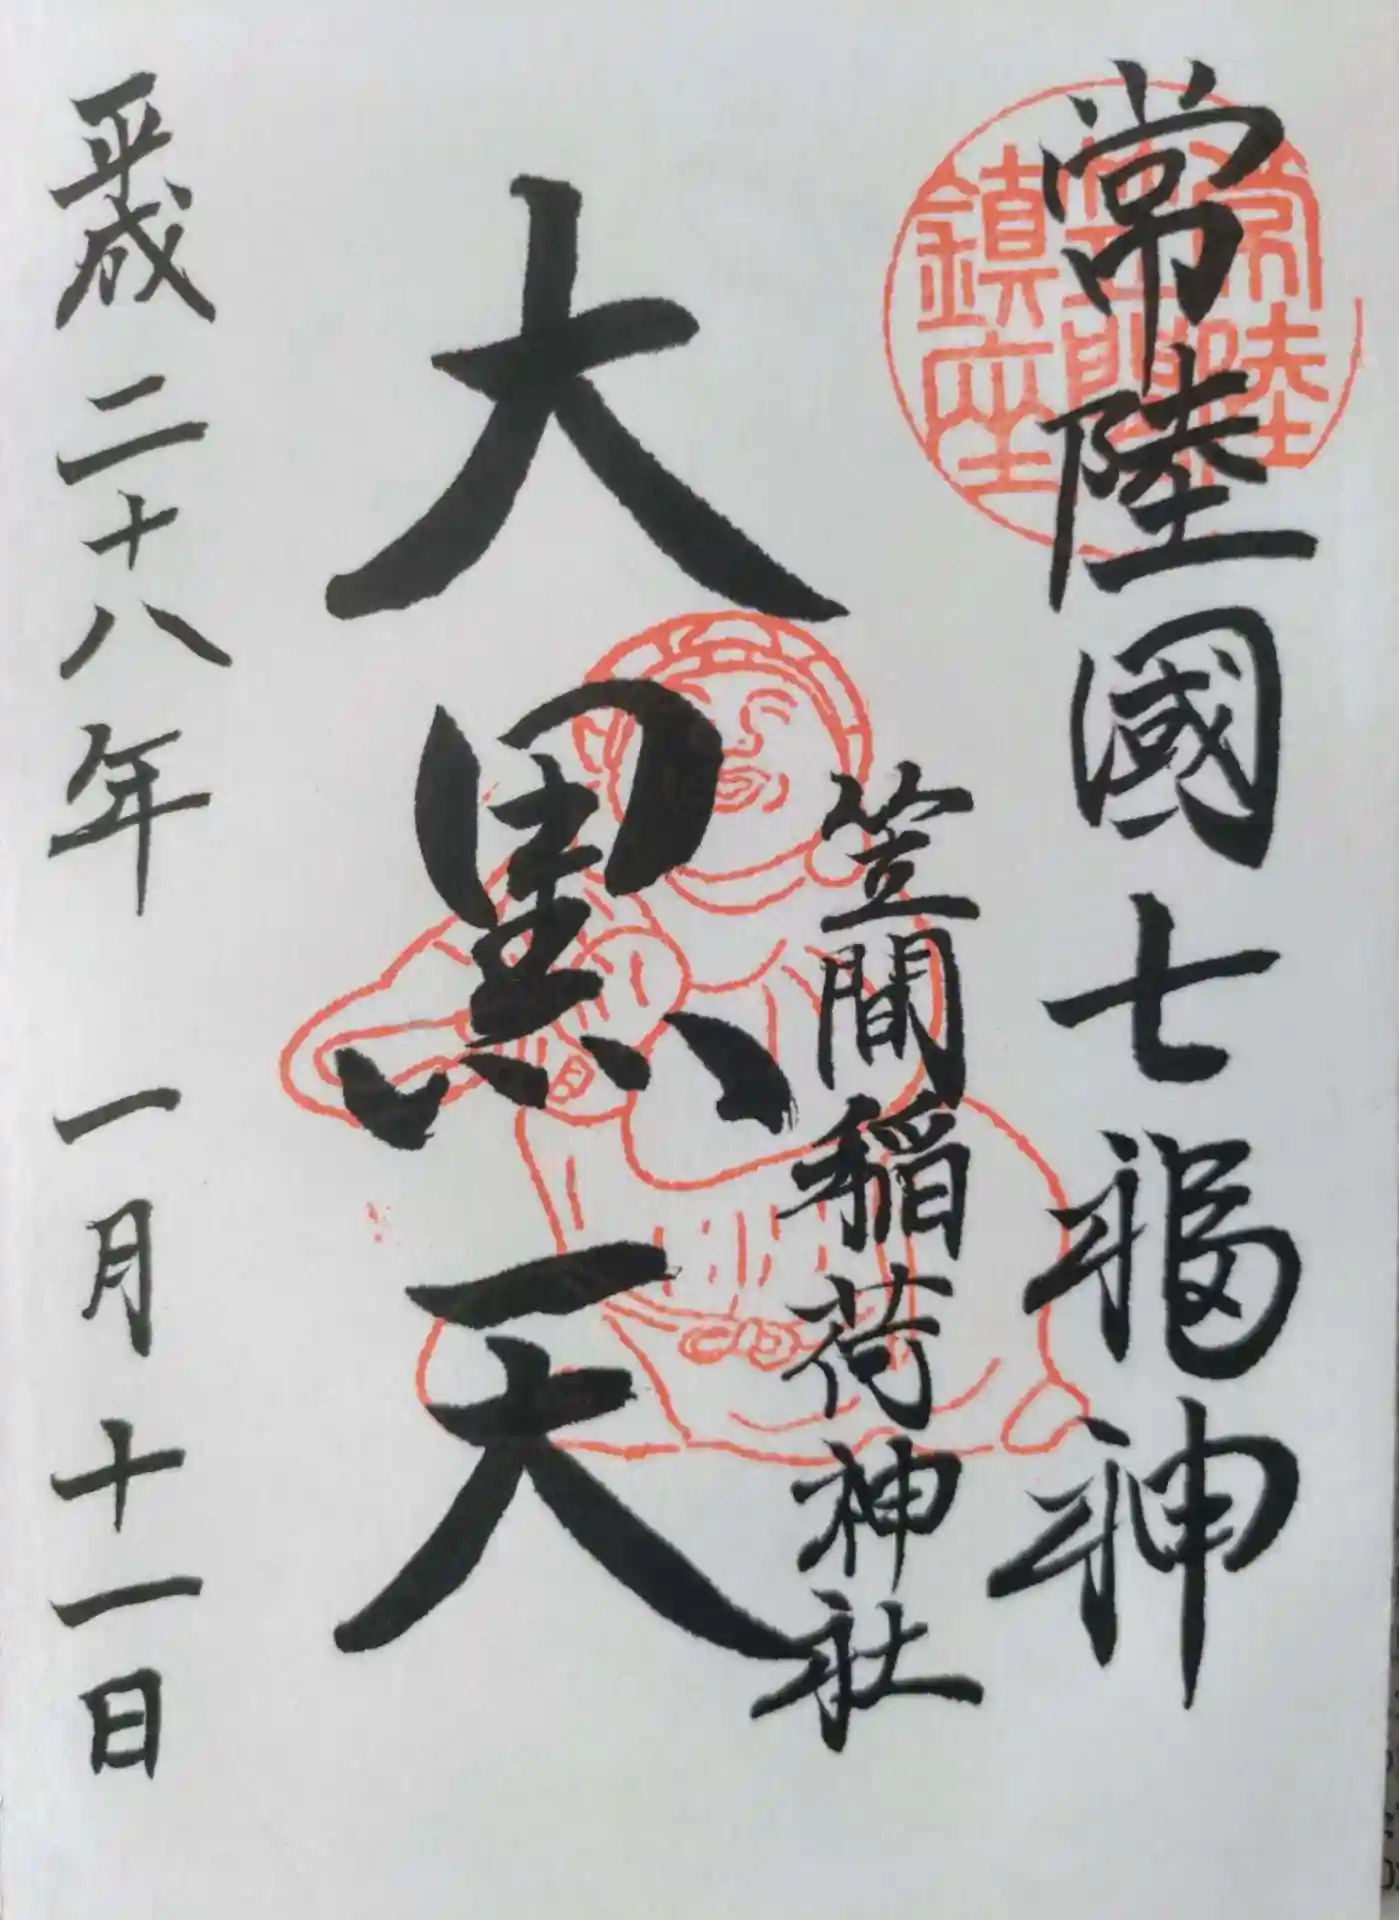 常陸國七福神
常陸
笠間
鎮座
笠間稲荷神社
大黒天
平成二十八年 一月十一日